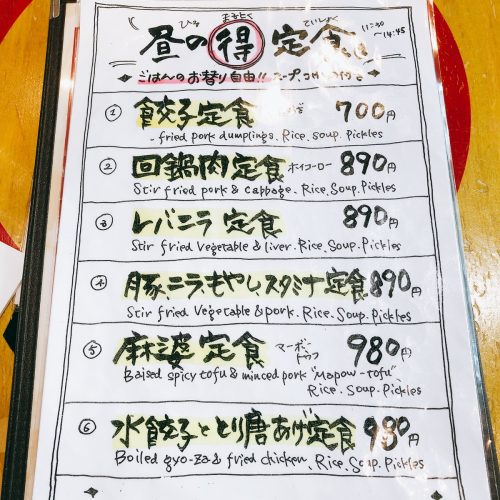 ひる まるとく ていしょく
昼の得定食 11:30〜14:45
ごはんのお替り自由!!
① 餃子定食 700円
fried pork dumplings. Rice. soup. Pickles
② 回鍋肉定食 ホイコーロー 890円
Stir fried pork & cabbage. Rice. Soup. Pickles
③ レバニラ定食 890円
Stir fried Vegetable & liver. Rice. Soup. Pickles
④ 豚、ニラもやし、スタミナ定食 890円
Stir fried Vegetable & pork. Rice. Soup. Pickles
⑤ 麻婆定食 マーボードウフ 980円
Baised spicy tofu & minced pork "Mapow-tofu"
Rice. Soup. Pickles
⑥ 水餃子ととり唐あげ定食 980円
Boiled gyo-za & fried chicken. Rice. Soup. Pickles